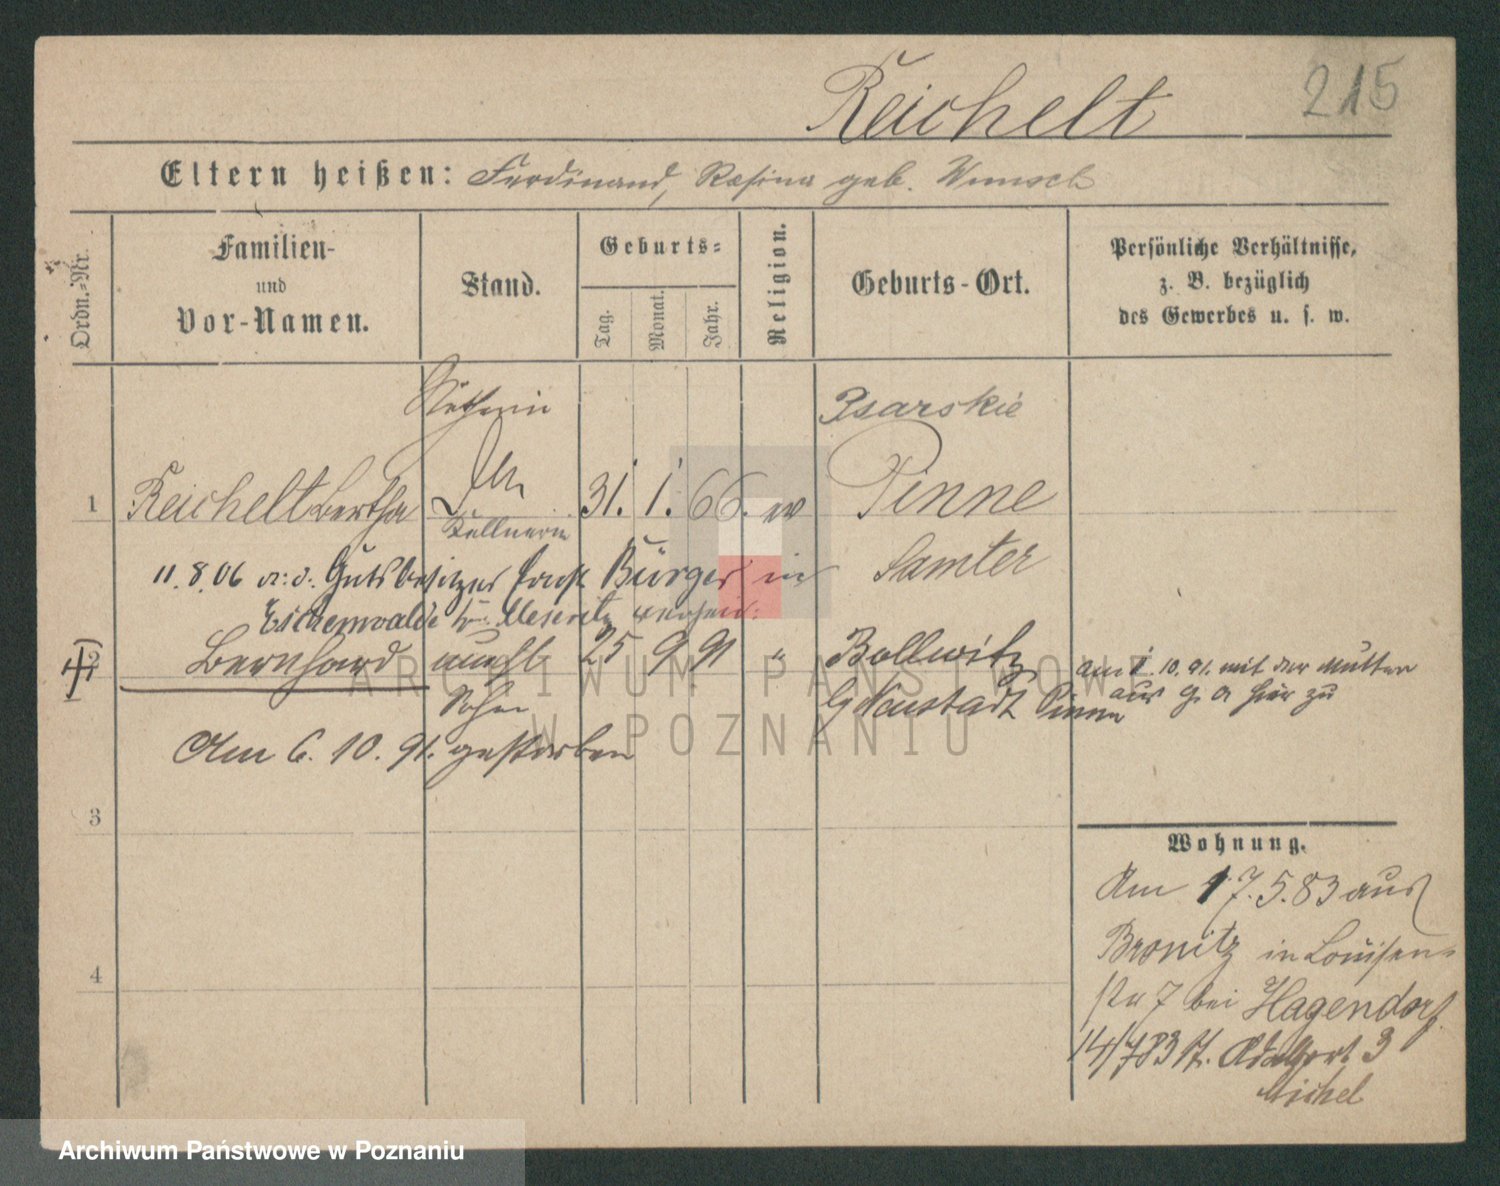 Reichelt
215
Eltern heißen: Ferdinand, Rosina geb. Wunsch
Ordn.-Nr.
Familien-
und
Vor-Namen.
Stand.
Geburts-
Tag.
Monat.
Jahr.
Religion.
Geburts-Ort.
Persönliche Verhältnisse,
z. B. bezüglich
des Gewerbes u. s. w.
Näherin
Psarskie
1 Reichelt Bertha 31. 1. 66. ev Pinne
Kellnerin
Samter
11.8.06 Gutsbesitzer Bürger in
Eschenwalde Kr. Meseritz
2 Bernhard unehl 25 9 91 " Bollwitz
am 1. 10. 91. mit der Mutter
Sohn
Neustadt Pinne
aus hier zu
Am 6. 10. 91. gestorben
3
4
Wohnung.
Am 17. 5. 83 aus
Bronitz in Louisen-
str 7 bei Hagendorf
14/7 83 St. Adalbert 3
Michel
ARCHIWUM PAŃSTWOWE
W POZNANIU
Archiwum Państwowe w Poznaniu